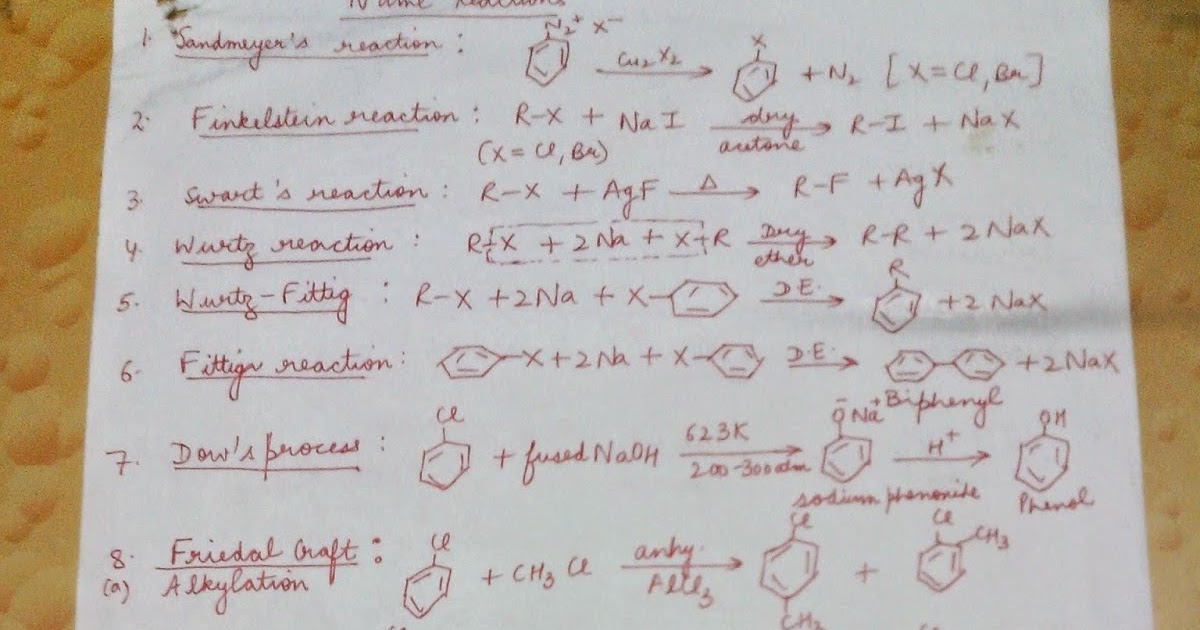 Name reactions
1. Sandmeyer's reaction : N₂⁺ X⁻ Cu₂X₂ → X + N₂ [X = Cl, Br]
2. Finkelstein reaction : R-X + NaI dry acetone → R-I + NaX
(X = Cl, Br)
3. Swart's reaction : R-X + AgF Δ → R-F + AgX
4. Wurtz reaction : R-X + 2Na + X-R Dry ether → R-R + 2NaX
5. Wurtz-Fittig : R-X + 2Na + X- D.E. → R + 2NaX
6. Fittig reaction : -X + 2Na + X- D.E. → + 2NaX
Biphenyl
7. Dow's process : Cl + fused NaOH 623K 200-300atm → ŌNa⁺ H⁺ → OH
sodium phenoxide Phenol
8. Friedal Craft : Cl + CH₃Cl anhy. AlCl₃ → Cl CH₃ + Cl CH₃
(a) Alkylation